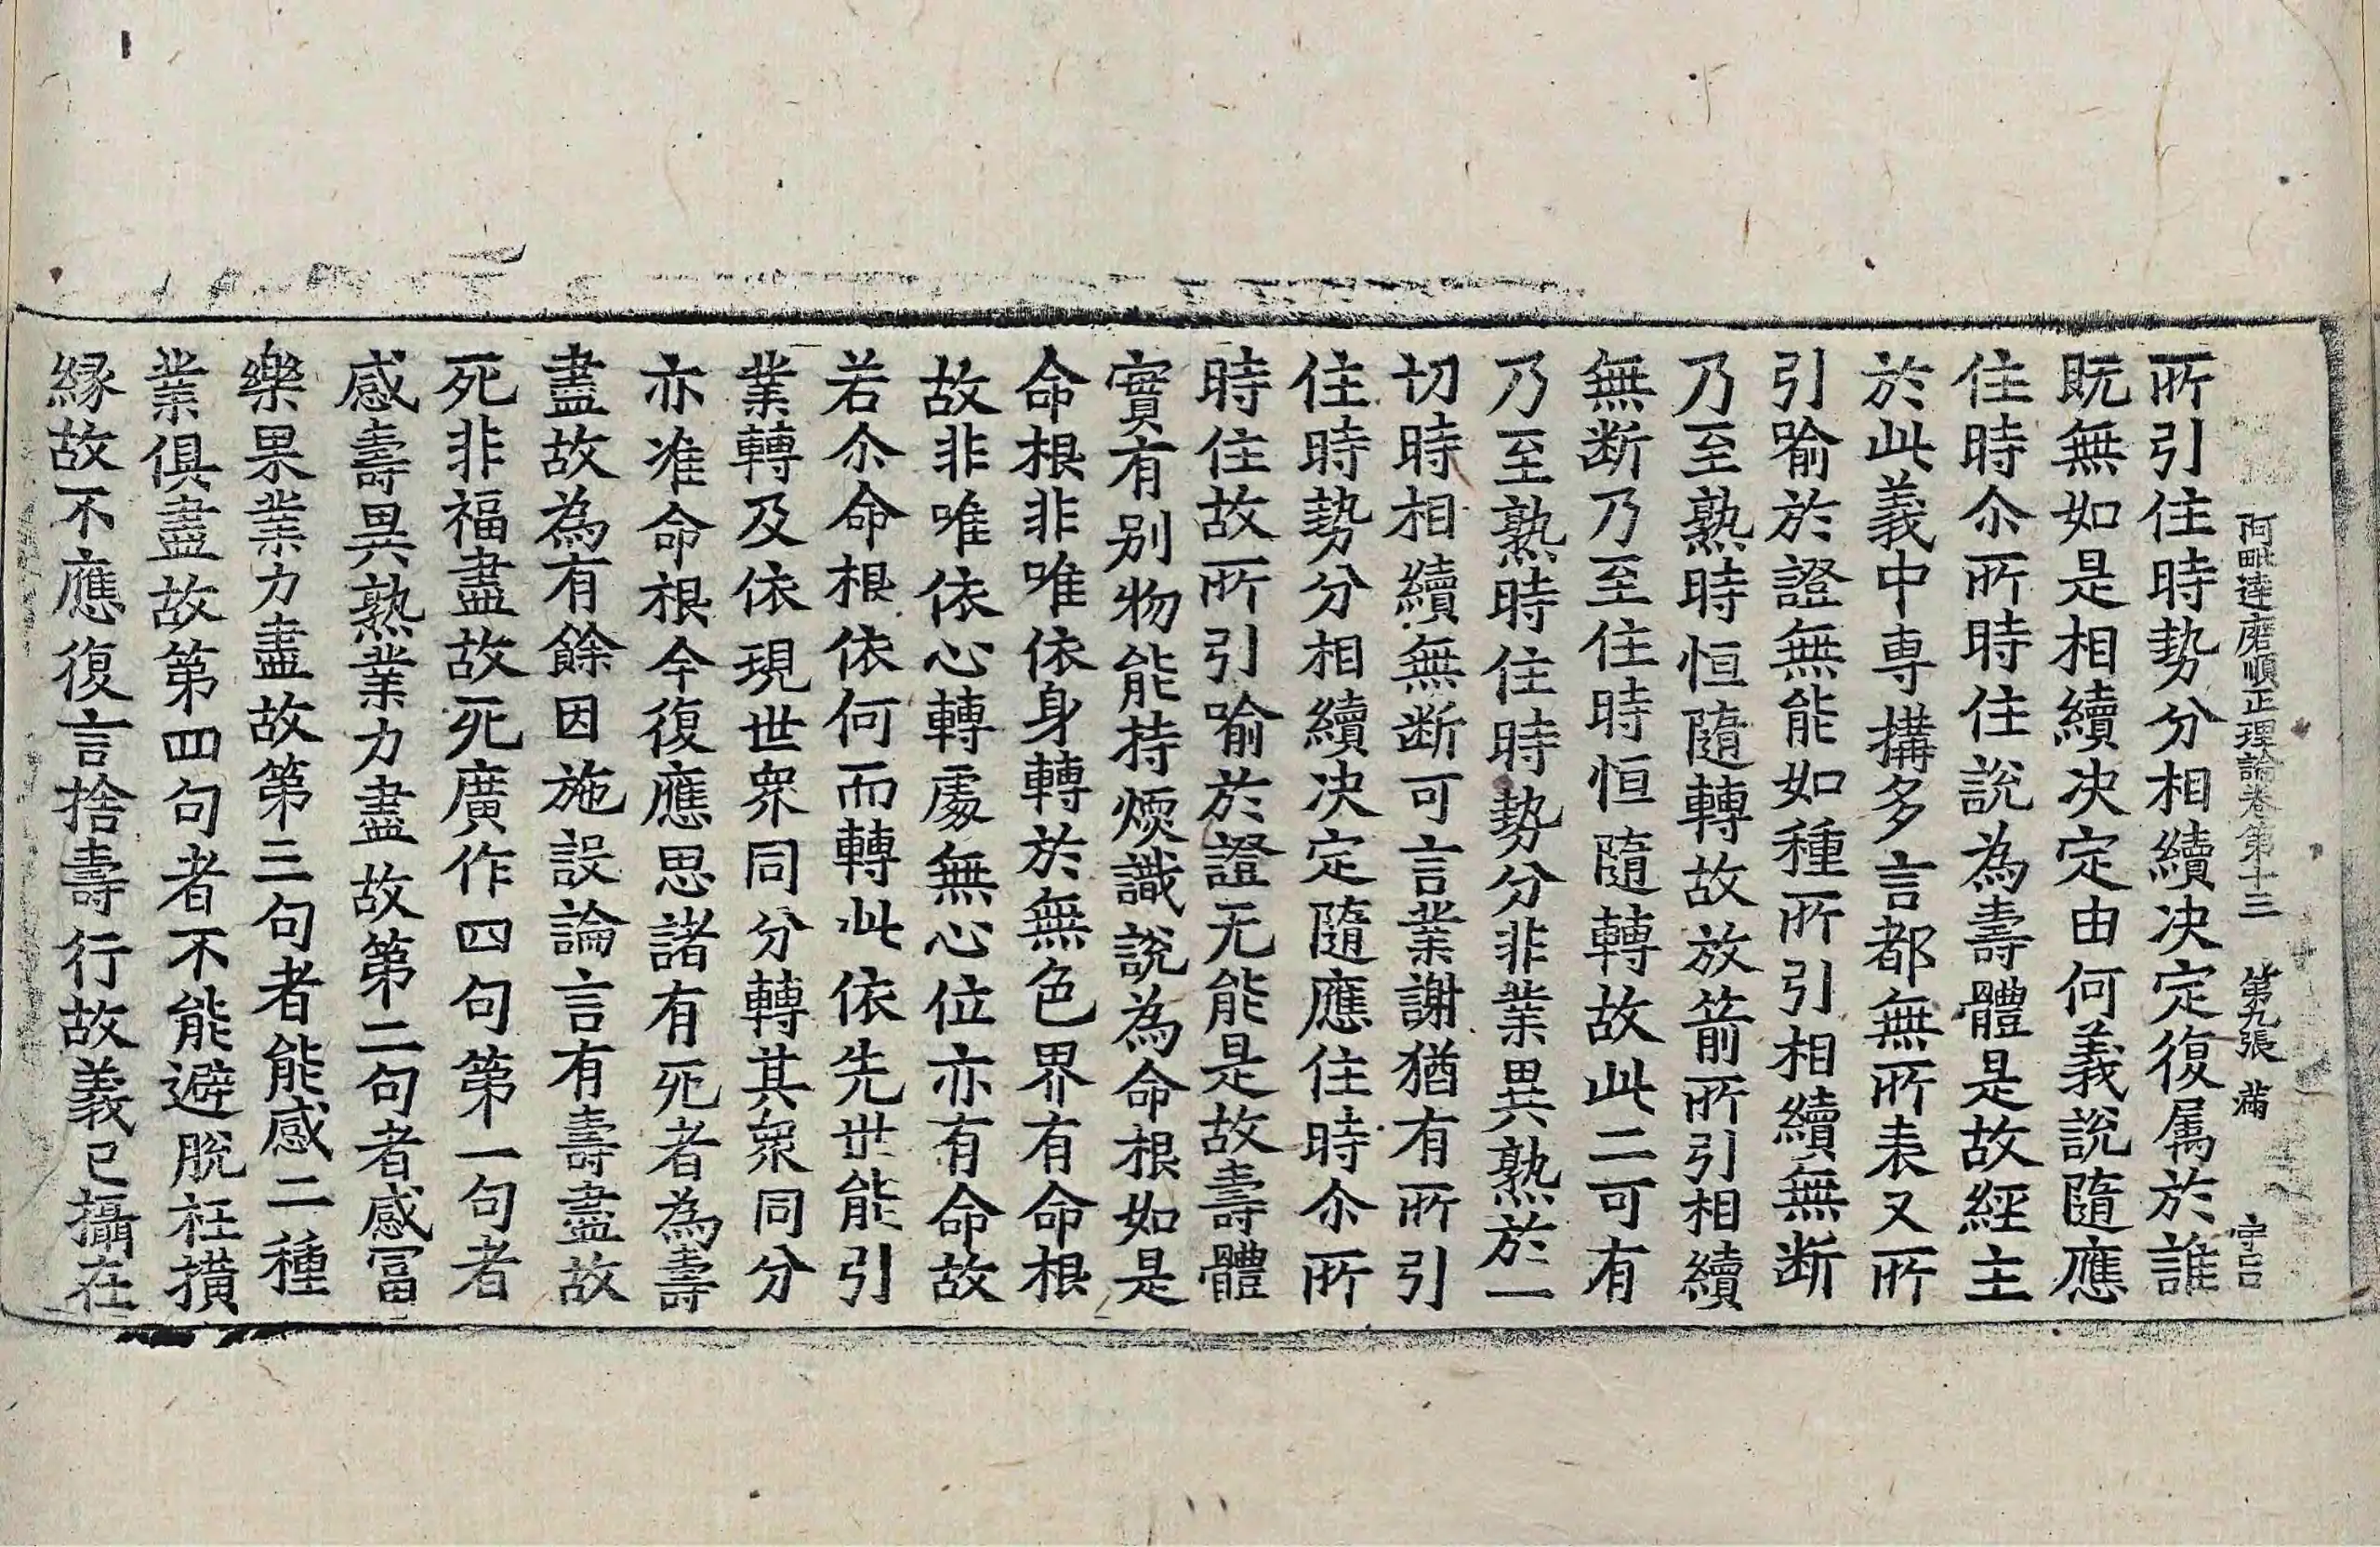 阿毗達磨順正理論卷第十三 第九張 滿 守吉
所引住時勢分相續决定復属於誰
既無如是相續决定由何義說隨應
住時尒所時住說為壽體是故經主
於此義中專搆多言都無所表又所
引喻於證無能如種所引相續無断
乃至熟時恒隨轉故放箭所引相續
無断乃至住時恒隨轉故此二可有
乃至熟時住時勢分非業異熟於一
切時相續無断可言業謝猶有所引
住時勢分相續决定隨應住時尒所
時住故所引喻於證无能是故壽體
實有别物能持煗識說為命根如是
命根非唯依身轉於無色界有命根
故非唯依心轉處無心位亦有命故
若尒命根依何而轉此依先世能引
業轉及依現世衆同分轉其衆同分
亦准命根今復應思諸有死者為壽
盡故為有餘因施設論言有壽盡故
死非福盡故死廣作四句第一句者
感壽異熟業力盡故第二句者感冨
樂果業力盡故第三句者能感二種
業俱盡故第四句者不能避脫枉撗
縁故不應復言捨壽行故義已攝在